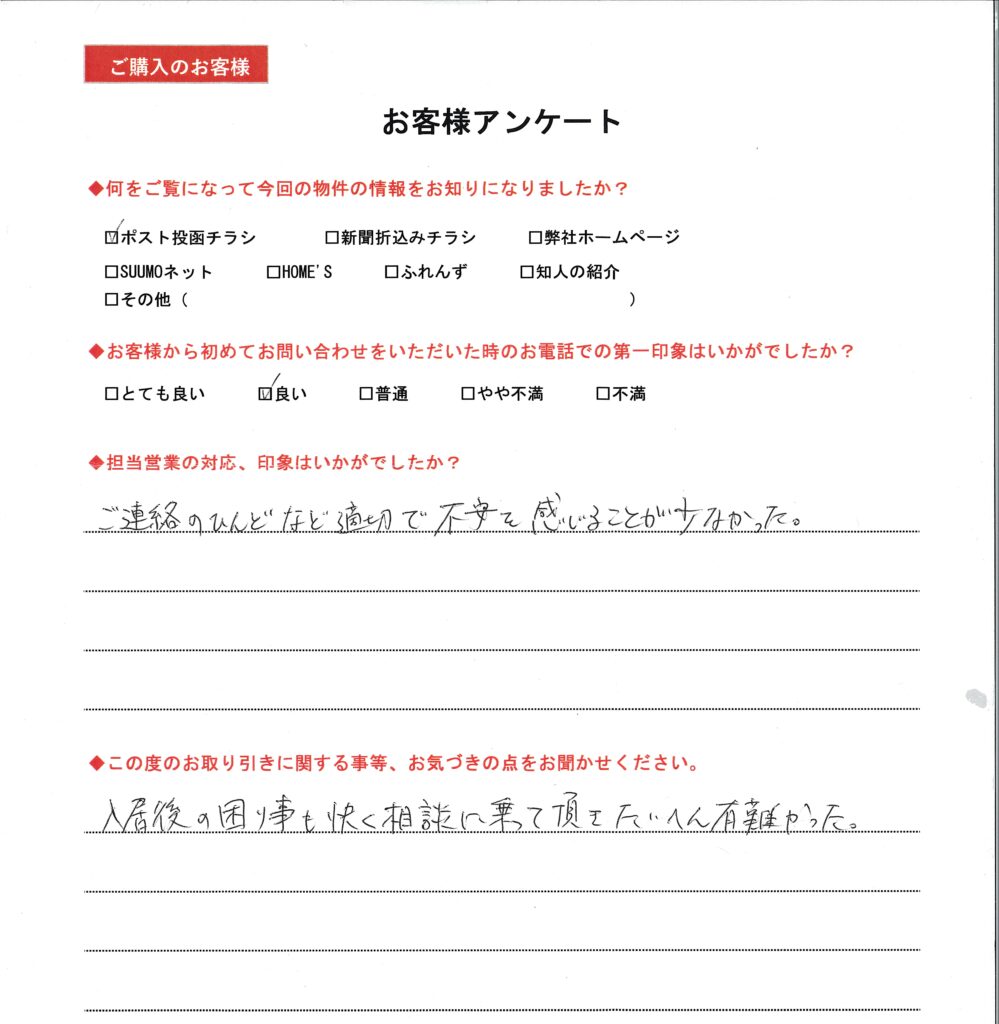 ご購入のお客様
お客様アンケート
◆何をご覧になって今回の物件の情報をお知りになりましたか？
☑ポスト投函チラシ □新聞折込みチラシ □弊社ホームページ
□SUUMOネット □HOME'S □ふれんず □知人の紹介
□その他（ ）
◆お客様から初めてお問い合わせをいただいた時のお電話での第一印象はいかがでしたか？
□とても良い ☑良い □普通 □やや不満 □不満
◆担当営業の対応、印象はいかがでしたか？
ご連絡のひんどなど適切で不安を感じることが少なかった。
◆この度のお取り引きに関する事等、お気づきの点をお聞かせください。
入居後の困り事も快く相談に乗って頂きたいへん有難かった。